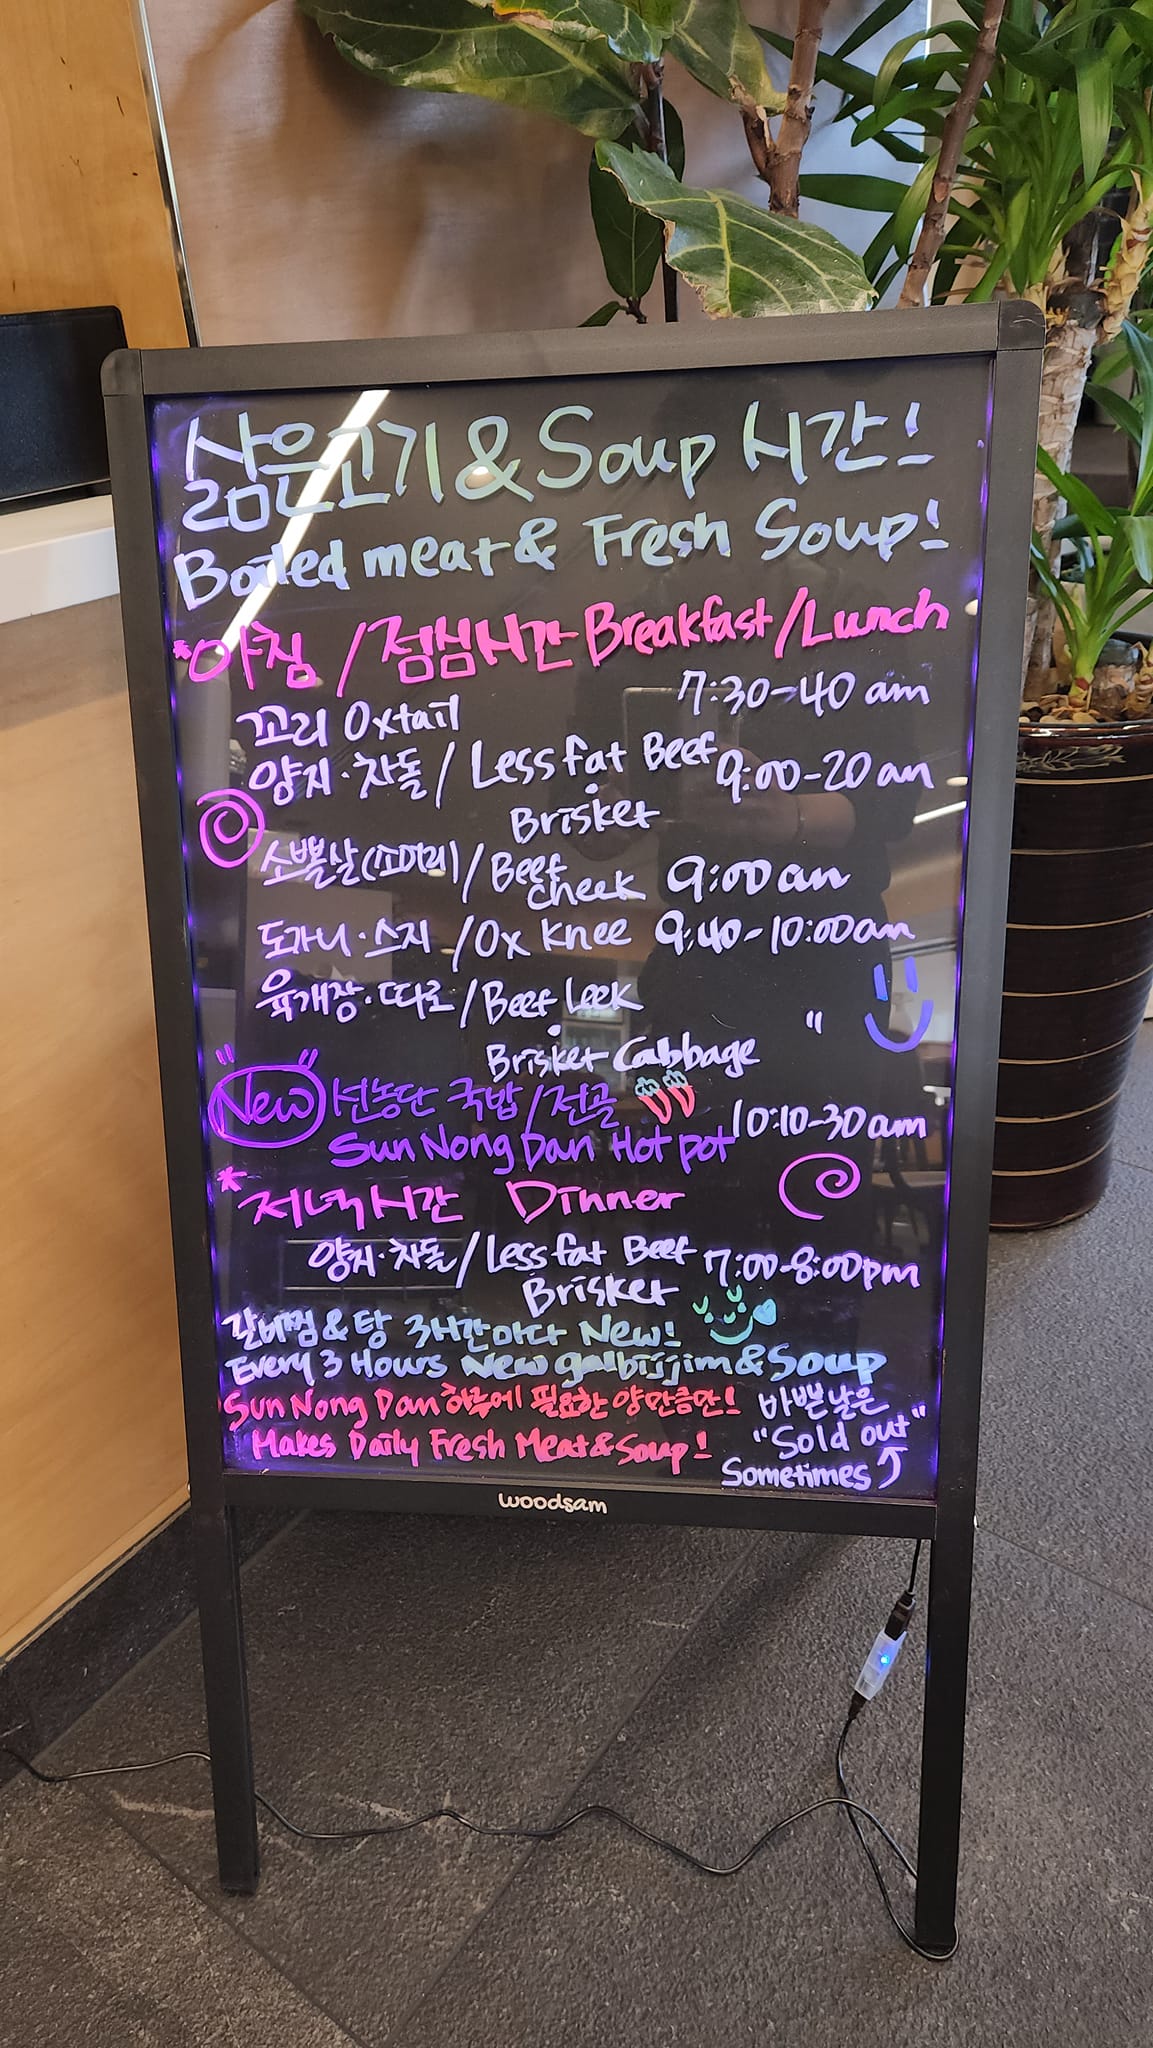 삶은고기 & Soup 시간!
Boiled meat & Fresh Soup!
*아침 / 점심시간 Breakfast/Lunch
꼬리 Oxtail 7:30-40 am
양지·차돌 / Less fat Beef 9:00-20 am
· Brisket
소뽈살(소머리) / Beef cheek 9:00 am
도가니·스지 / Ox Knee 9:40-10:00 am
육개장·따로 / Beef Leek "
· Brisket Cabbage
"New" 선농단 국밥 / 전골
Sun Nong Dan Hot pot 10:10-30 am
* 저녁시간 Dinner
양지·차돌 / Less fat Beef 7:00-8:00pm
Brisket
갈비찜 & 탕 3시간마다 New!
Every 3 Hours New galbijjim & Soup
Sun Nong Dan 하루에 필요한 양만큼만! 바쁜날은
Makes Daily Fresh Meat & Soup! "Sold out"
Sometimes
woodsam